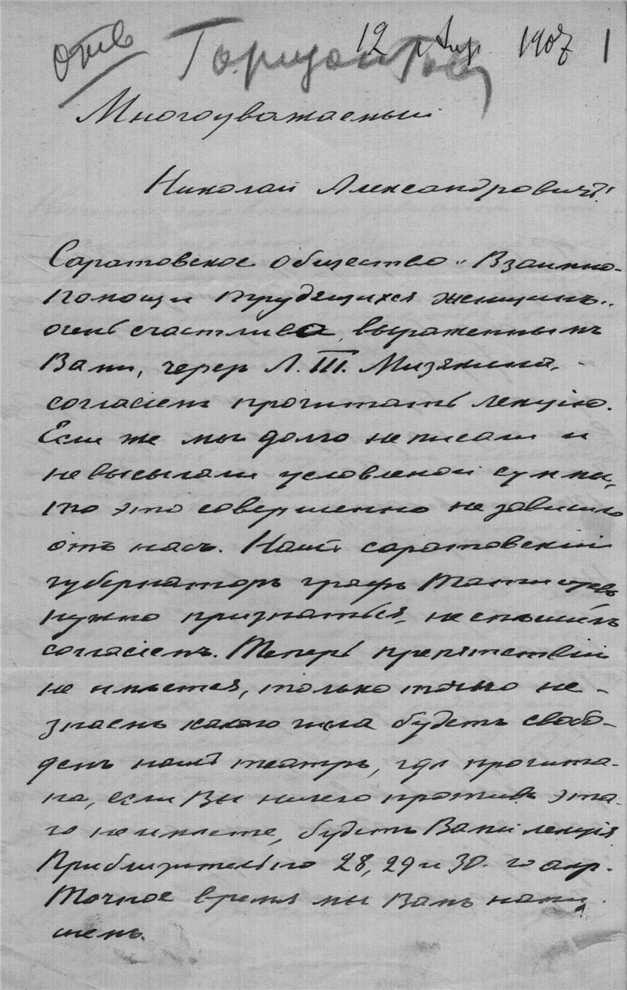 отв
12 Апр 1907 1
Многоуважаемый
Николай Александровичъ!
Саратовское общество „Взаимно-
помощи трудящихся женщинъ"
очень счастливо, выраженнымъ
Вами, черезъ Л. III. Мизякина,
согласіемъ прочитать лекцію.
Если же мы долго не писали и
не высылали условленой суммы,
то это совершенно не зависило
отъ насъ. Нашъ саратовскій
губернаторъ графъ Татищевъ
нужно признаться, не спѣшилъ
согласіемъ. Теперь препятствій
не имѣется, только точно не-
знаемъ какого числа будетъ свобо-
денъ нашъ театръ, гдѣ прочита-
на, если Вы ничего противъ это-
го не имѣете, будетъ Ваша лекція.
Приблизительно 28, 29 и 30-го апр.
Точное время мы Вамъ напи-
шемъ.